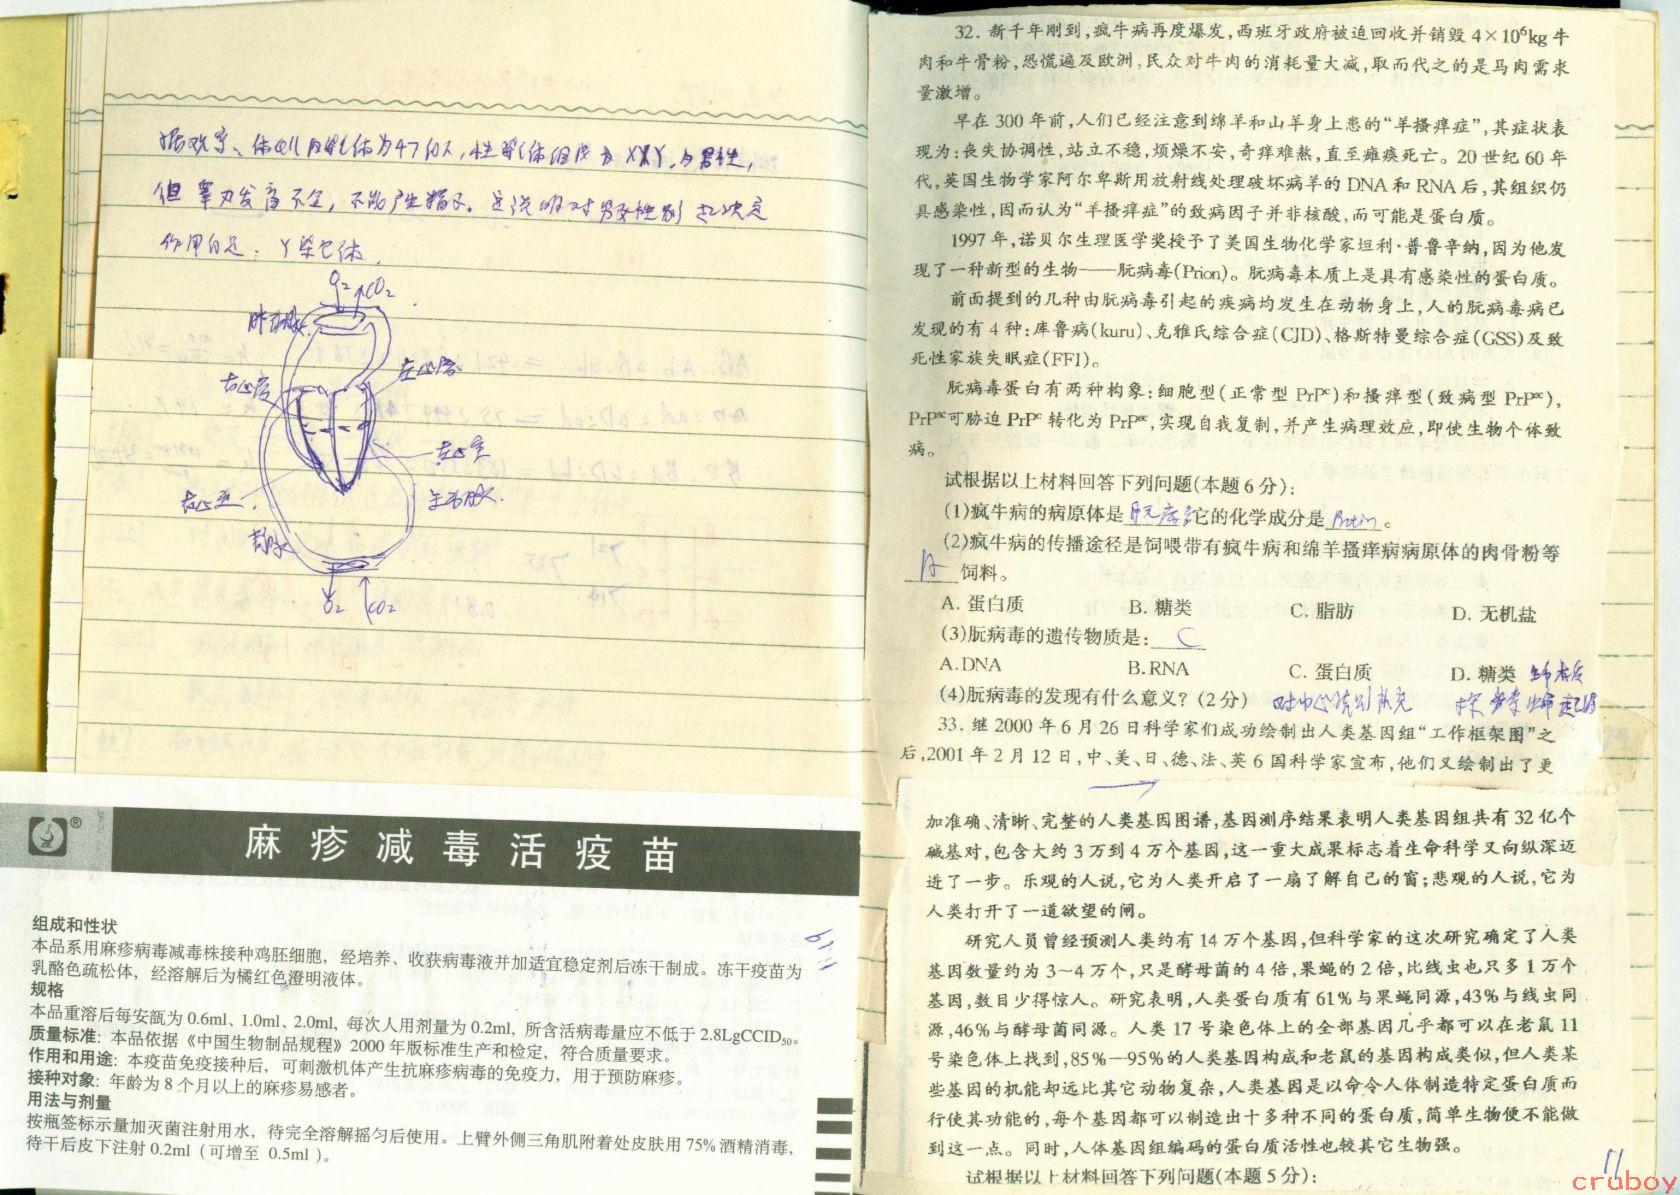 据观察、体细胞内染色体为47的人,性染色体组成为XXY,为男性,
但睾丸发育不全,不能产生精子。这说明对男女性别起决定
作用的是:Y染色体.
O2 CO2
肺动脉
右心房
左心房
左心室
右心室
主动脉.
静脉
O2 CO2
麻疹减毒活疫苗
组成和性状
本品系用麻疹病毒减毒株接种鸡胚细胞,经培养、收获病毒液并加适宜稳定剂后冻干制成。冻干疫苗为
乳酪色疏松体,经溶解后为橘红色澄明液体。
规格
本品重溶后每安瓿为 0.6ml、1.0ml、2.0ml,每次人用剂量为 0.2ml,所含活病毒量应不低于 2.8LgCCID50。
质量标准: 本品依据《中国生物制品规程》2000 年版标准生产和检定,符合质量要求。
作用和用途: 本疫苗免疫接种后,可刺激机体产生抗麻疹病毒的免疫力,用于预防麻疹。
接种对象: 年龄为 8 个月以上的麻疹易感者。
用法与剂量
按瓶签标示量加灭菌注射用水,待完全溶解摇匀后使用。上臂外侧三角肌附着处皮肤用 75% 酒精消毒,
待干后皮下注射 0.2ml(可增至 0.5ml)。
32. 新千年刚到,疯牛病再度爆发,西班牙政府被迫回收并销毁 4×10⁶kg 牛
肉和牛骨粉,恐慌遍及欧洲,民众对牛肉的消耗量大减,取而代之的是马肉需求
量激增。
早在 300 年前,人们已经注意到绵羊和山羊身上患的“羊搔痒症”,其症状表
现为:丧失协调性,站立不稳,烦燥不安,奇痒难熬,直至瘫痪死亡。20 世纪 60 年
代,英国生物学家阿尔卑斯用放射线处理破坏病羊的 DNA 和 RNA 后,其组织仍
具感染性,因而认为“羊搔痒症”的致病因子并非核酸,而可能是蛋白质。
1997 年,诺贝尔生理医学奖授予了美国生物化学家坦利·普鲁辛纳,因为他发
现了一种新型的生物——朊病毒(Prion)。朊病毒本质上是具有感染性的蛋白质。
前面提到的几种由朊病毒引起的疾病均发生在动物身上,人的朊病毒病已
发现的有 4 种:库鲁病(kuru)、克雅氏综合症(CJD)、格斯特曼综合症(GSS)及致
死性家族失眠症(FFI)。
朊病毒蛋白有两种构象:细胞型(正常型 PrPᶜ)和搔痒型(致病型 PrPˢᶜ),
PrPˢᶜ可胁迫 PrPᶜ 转化为 PrPˢᶜ,实现自我复制,并产生病理效应,即使生物个体致
病。
试根据以上材料回答下列问题(本题 6 分):
(1)疯牛病的病原体是朊病毒它的化学成分是Protin。
(2)疯牛病的传播途径是饲喂带有疯牛病和绵羊搔痒病病原体的肉骨粉等
A 饲料。
A. 蛋白质 B. 糖类 C. 脂肪 D. 无机盐
(3)朊病毒的遗传物质是: C
A.DNA B.RNA C. 蛋白质 D. 糖类 生命本质
(4)朊病毒的发现有什么意义?(2 分) 对中心法则补充 探索生命起源
33. 继 2000 年 6 月 26 日科学家们成功绘制出人类基因组“工作框架图”之
后,2001 年 2 月 12 日,中、美、日、德、法、英 6 国科学家宣布,他们又绘制出了更
加准确、清晰、完整的人类基因图谱,基因测序结果表明人类基因组共有 32 亿个
碱基对,包含大约 3 万到 4 万个基因,这一重大成果标志着生命科学又向纵深迈
进了一步。乐观的人说,它为人类开启了一扇了解自己的窗;悲观的人说,它为
人类打开了一道欲望的闸。
研究人员曾经预测人类约有 14 万个基因,但科学家的这次研究确定了人类
基因数量约为 3~4 万个,只是酵母菌的 4 倍,果蝇的 2 倍,比线虫也只多 1 万个
基因,数目少得惊人。研究表明,人类蛋白质有 61% 与果蝇同源,43% 与线虫同
源,46% 与酵母菌同源。人类 17 号染色体上的全部基因几乎都可以在老鼠 11
号染色体上找到,85%—95% 的人类基因构成和老鼠的基因构成类似,但人类某
些基因的机能却远比其它动物复杂,人类基因是以命令人体制造特定蛋白质而
行使其功能的,每个基因都可以制造出十多种不同的蛋白质,简单生物便不能做
到这一点。同时,人体基因组编码的蛋白质活性也较其它生物强。
试根据以上材料回答下列问题(本题 5 分):
11
cruboy